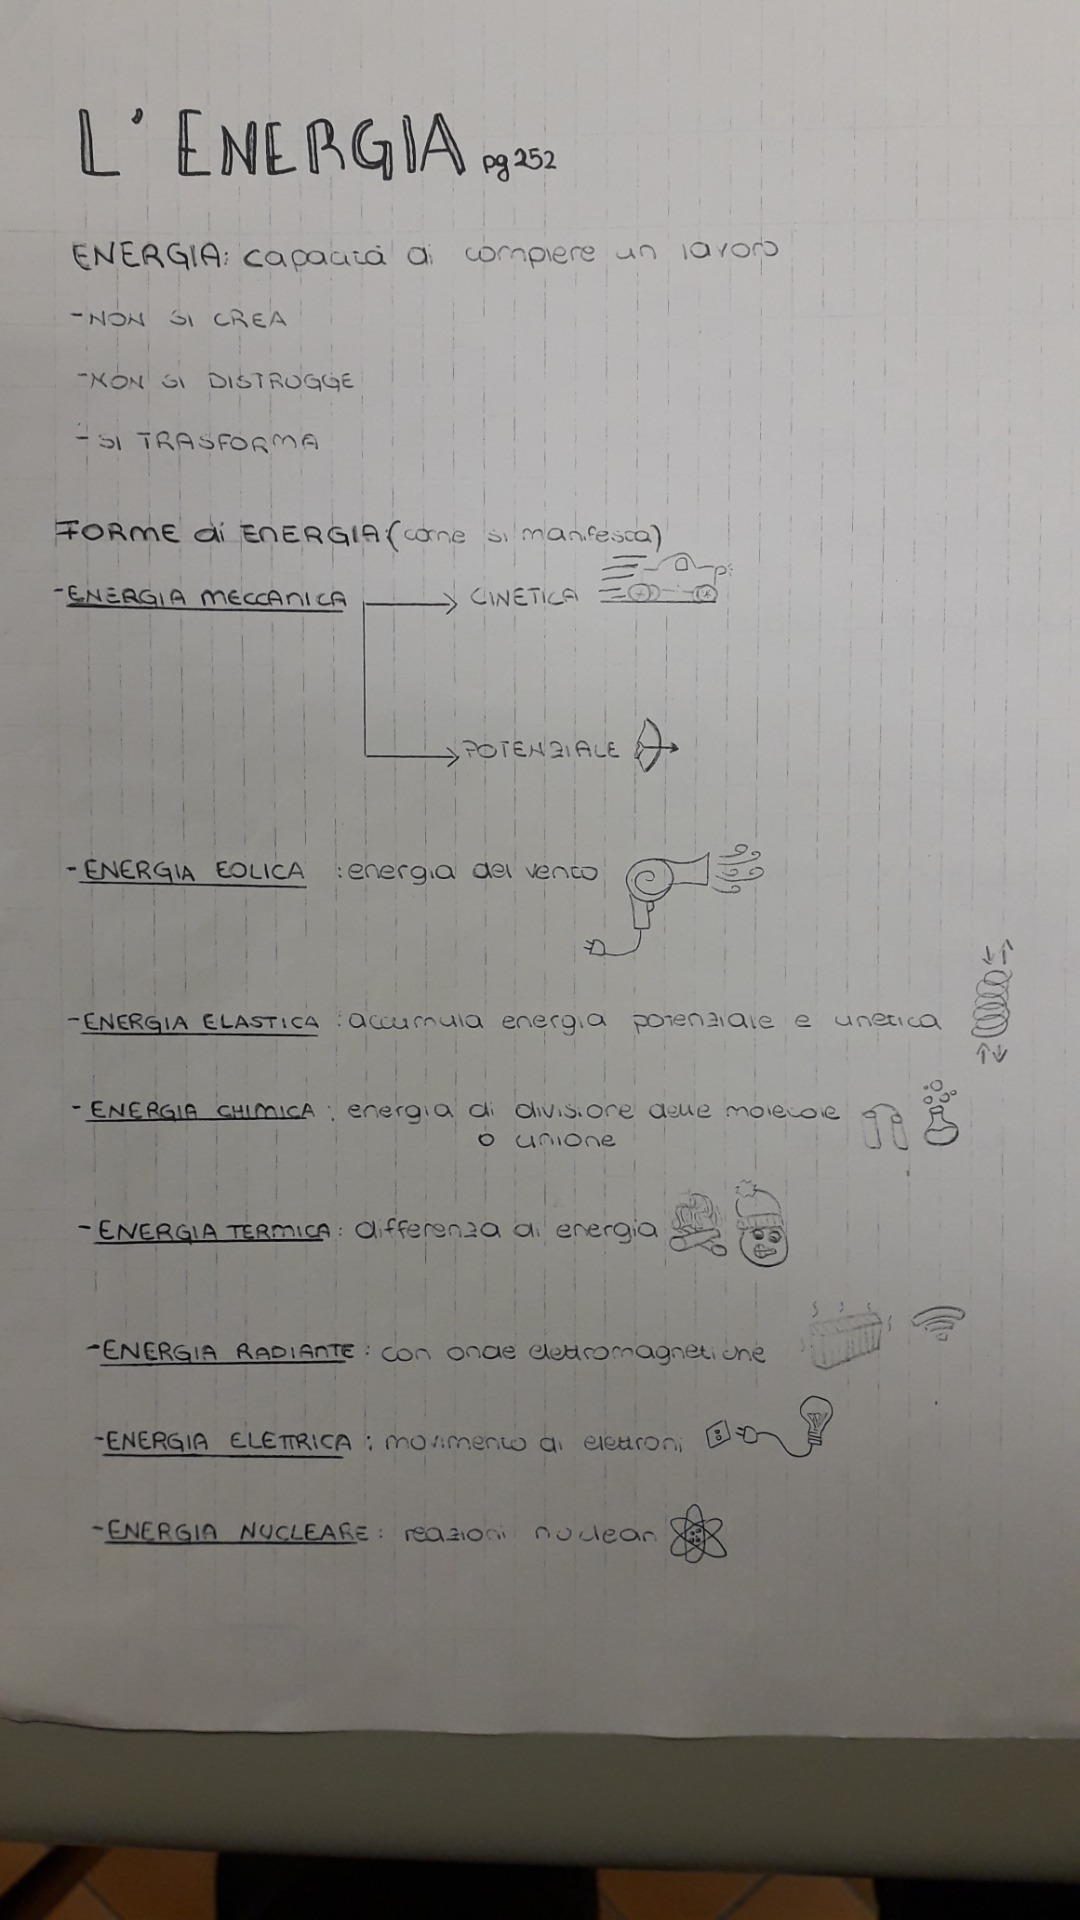 L'ENERGIA pg 252
ENERGIA: capacità di compiere un lavoro
-NON SI CREA
-NON SI DISTRUGGE
-SI TRASFORMA
FORME di ENERGIA (come si manifesta)
-ENERGIA MECCANICA → CINETICA
→ POTENZIALE
-ENERGIA EOLICA : energia del vento
-ENERGIA ELASTICA : accumula energia potenziale e cinetica
-ENERGIA CHIMICA : energia di divisione delle molecole
o unione
-ENERGIA TERMICA : differenza di energia
-ENERGIA RADIANTE : con onde elettromagnetiche
-ENERGIA ELETTRICA : movimento di elettroni
-ENERGIA NUCLEARE : reazioni nucleari